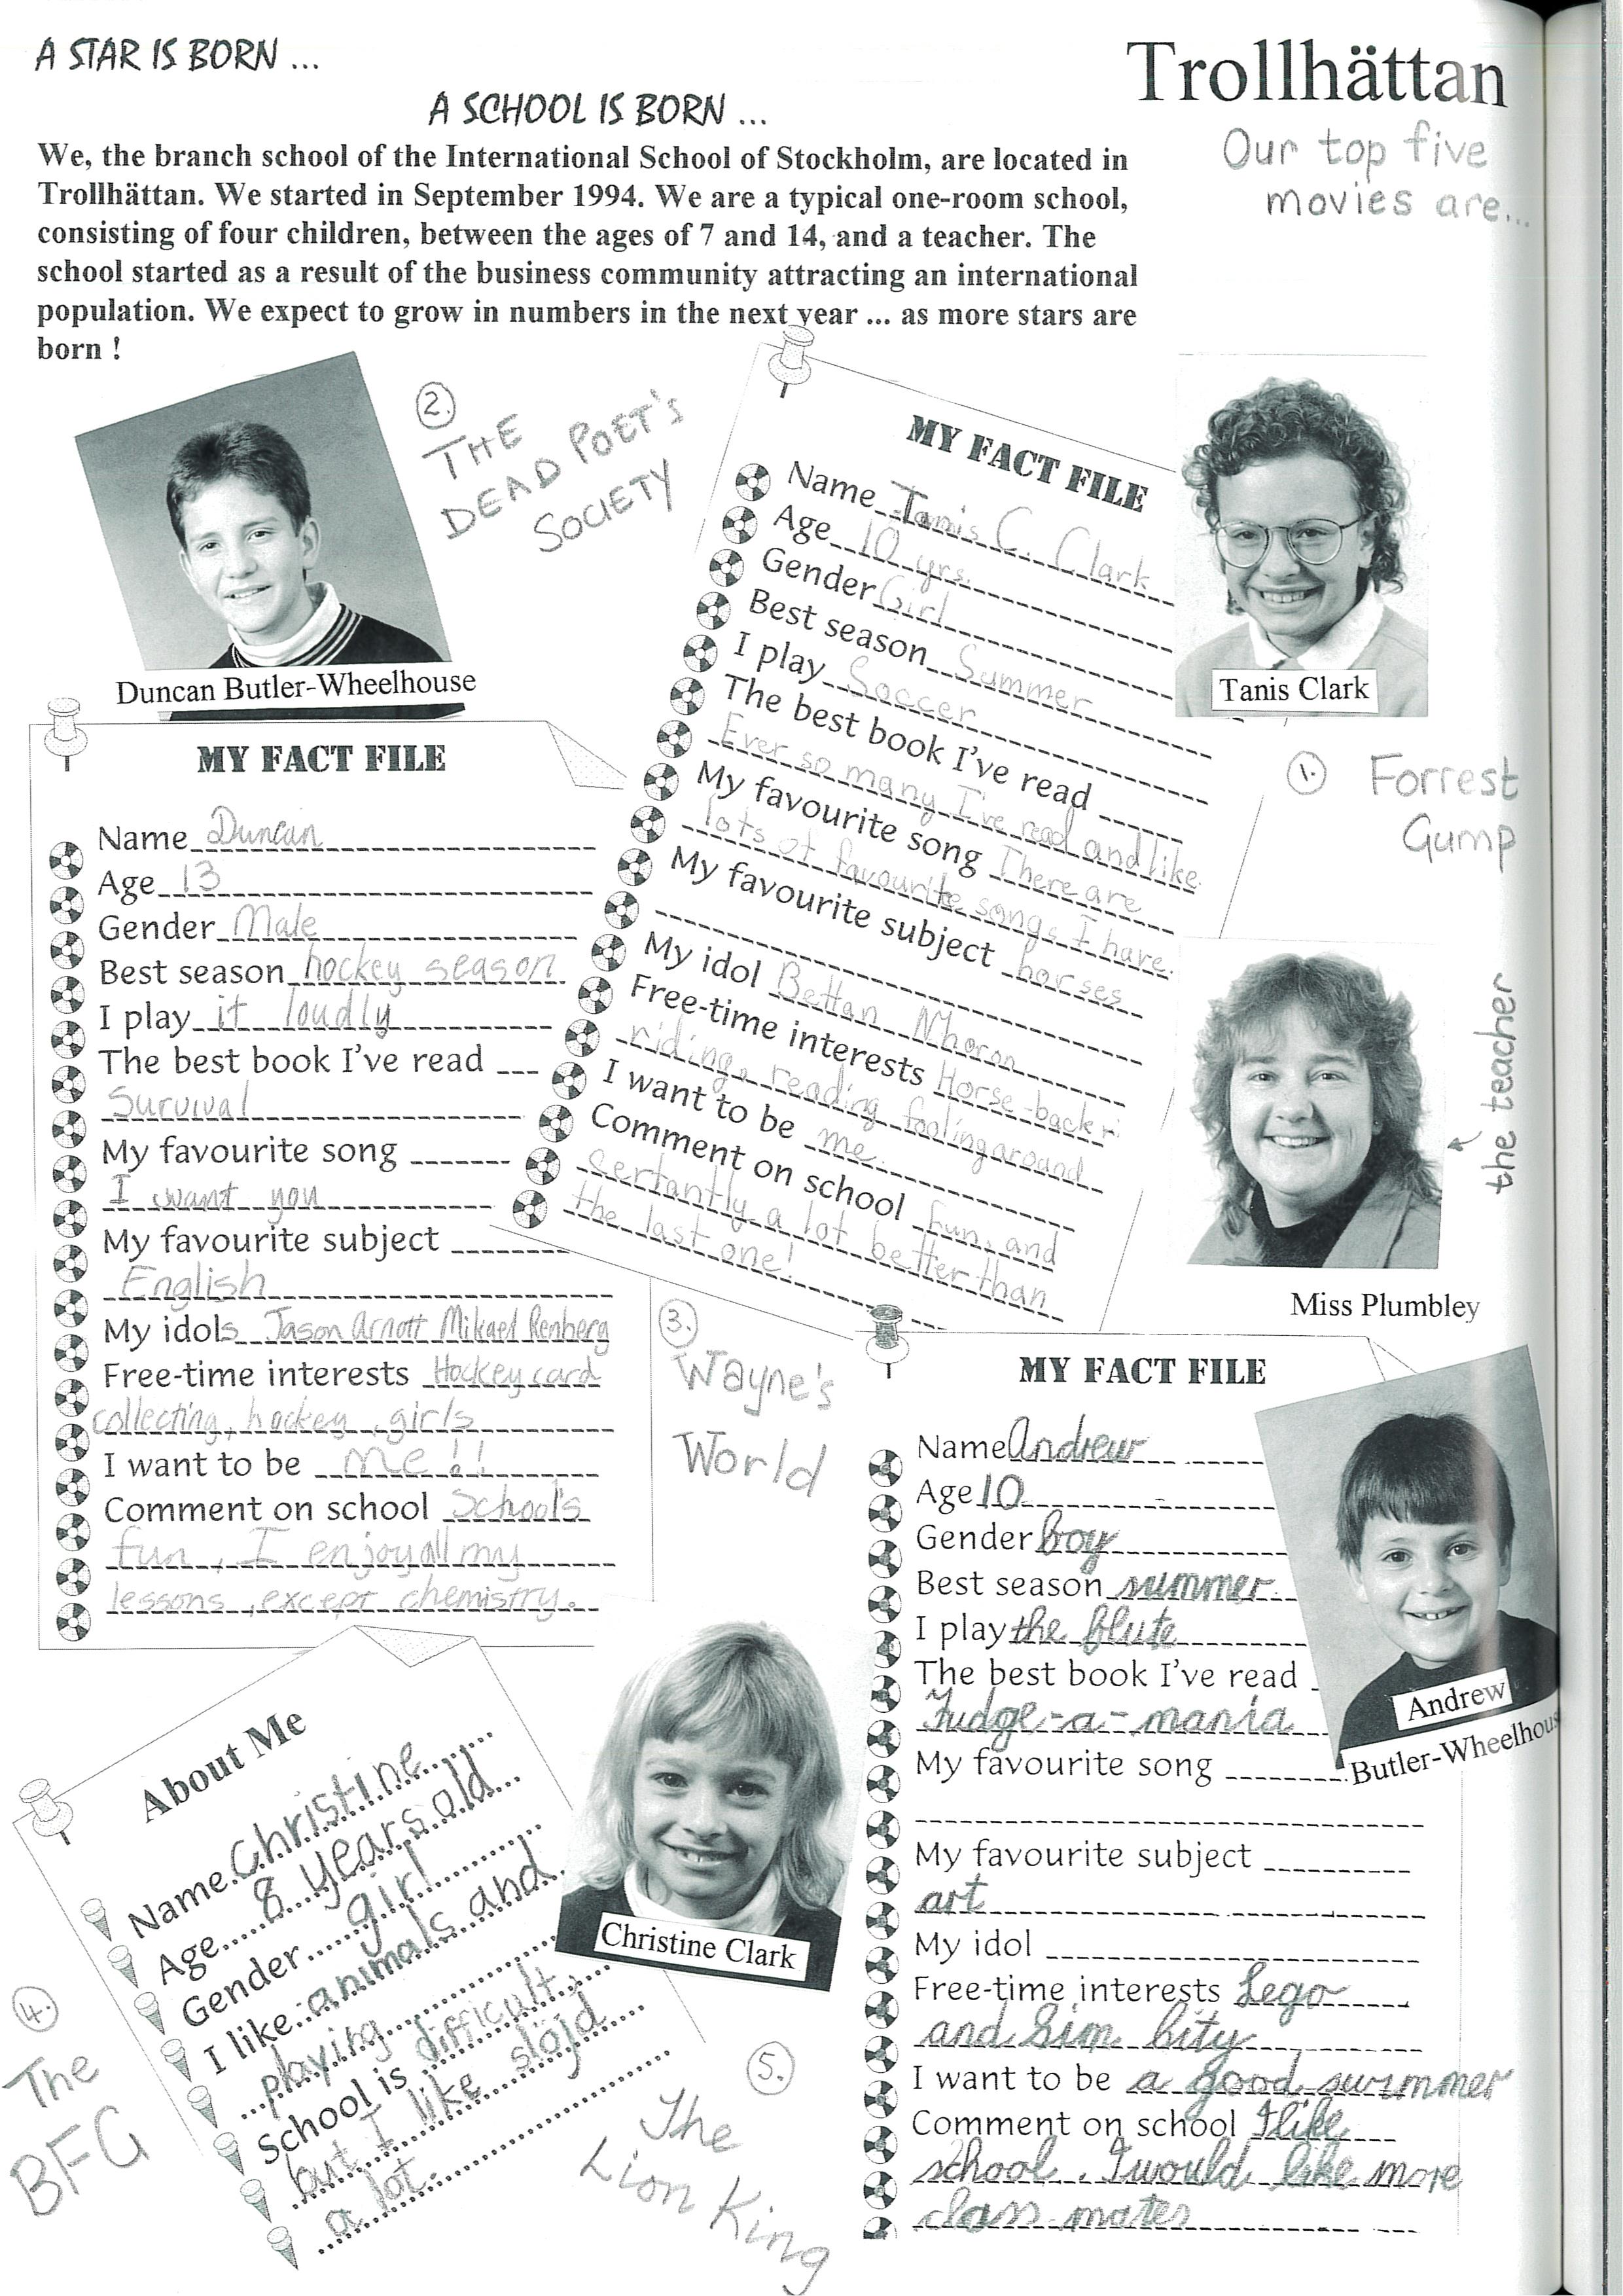 A STAR IS BORN ...
A SCHOOL IS BORN ...
Trollhättan
Our top five
movies are...
We, the branch school of the International School of Stockholm, are located in
Trollhättan. We started in September 1994. We are a typical one-room school,
consisting of four children, between the ages of 7 and 14, and a teacher. The
school started as a result of the business community attracting an international
population. We expect to grow in numbers in the next year ... as more stars are
born !
2.
THE
DEAD POET'S
SOCIETY
Duncan Butler-Wheelhouse
MY FACT FILE
Name Duncan
Age 13
Gender Male
Best season hockey season
I play it loudly
The best book I've read
Survival
My favourite song
I want you
My favourite subject
English
My idols Jason Arnott Mikael Renberg
Free-time interests Hockey card
collecting, hockey, girls
I want to be me!!
Comment on school School's
fun, I enjoy all my
lessons, except chemistry.
MY FACT FILE
Name Tanis C. Clark
Age 10 yrs.
Gender Girl
Best season Summer
I play Soccer
The best book I've read
Ever so many I've read and like.
My favourite song There are
lots of favourite songs I have.
My favourite subject horses
My idol Bettan
Free-time interests Horse-back
riding, reading, fooling around
I want to be me.
Comment on school fun, and
certantly a lot better than
the last one!
Tanis Clark
1. Forrest
Gump
the teacher
Miss Plumbley
3.
Wayne's
World
MY FACT FILE
Name Andrew
Age 10
Gender boy
Best season summer
I play the flute
The best book I've read
Fudge-a-mania
My favourite song
My favourite subject
art
My idol
Free-time interests Lego
and Sim City
I want to be a good swimmer
Comment on school I like
school. I would like more
class mates
Andrew
Butler-Wheelhouse
About Me
Name Christine
Age 8 years old
Gender girl
I like animals and
playing
School is difficult,
but I like slöjd
a lot.
Christine Clark
4.
The
BFG
5.
The
Lion King